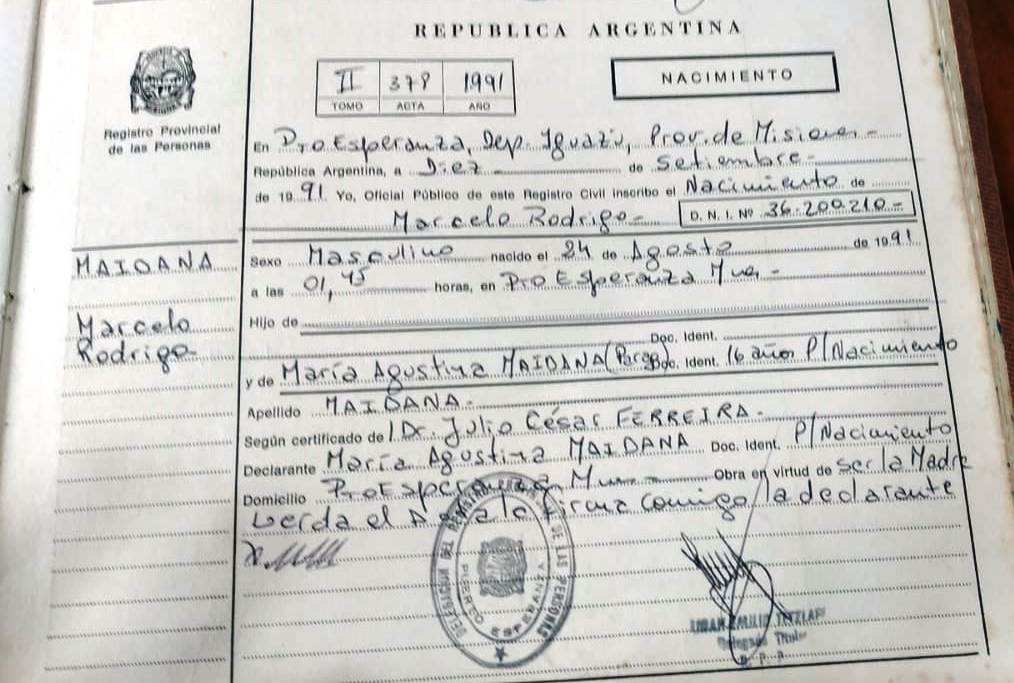 REPUBLICA ARGENTINA
II 378 1991
TOMO ACTA AÑO
NACIMIENTO
Registro Provincial
de las Personas
En Pto Esperanza, Dep. Iguazú, Prov. de Misiones
República Argentina, a Diez de Setiembre
de 1991 Yo, Oficial Público de este Registro Civil inscribo el Nacimiento de
Marcelo Rodrigo D. N. I. Nº 36.200.210
MAIDANA
Marcelo
Rodrigo
Sexo Masculino nacido el 24 de Agosto de 1991
a las 01,45 horas, en Pto Esperanza Mnes
Hijo de
Doc. Ident.
y de María Agustina MAIDANA (Parag) Doc. Ident. 16 años P/Nacimiento
Apellido MAIDANA
Según certificado de Dr. Julio César FERREIRA
Declarante María Agustina MAIDANA Doc. Ident. P/Nacimiento
Domicilio Pto Esperanza Obra en virtud de ser la Madre
Leida el Acta la firma comigo la declarante
DELEGACION DEL REGISTRO PROVINCIAL DE LAS PERSONAS
PUERTO ESPERANZA
Delegado Titular